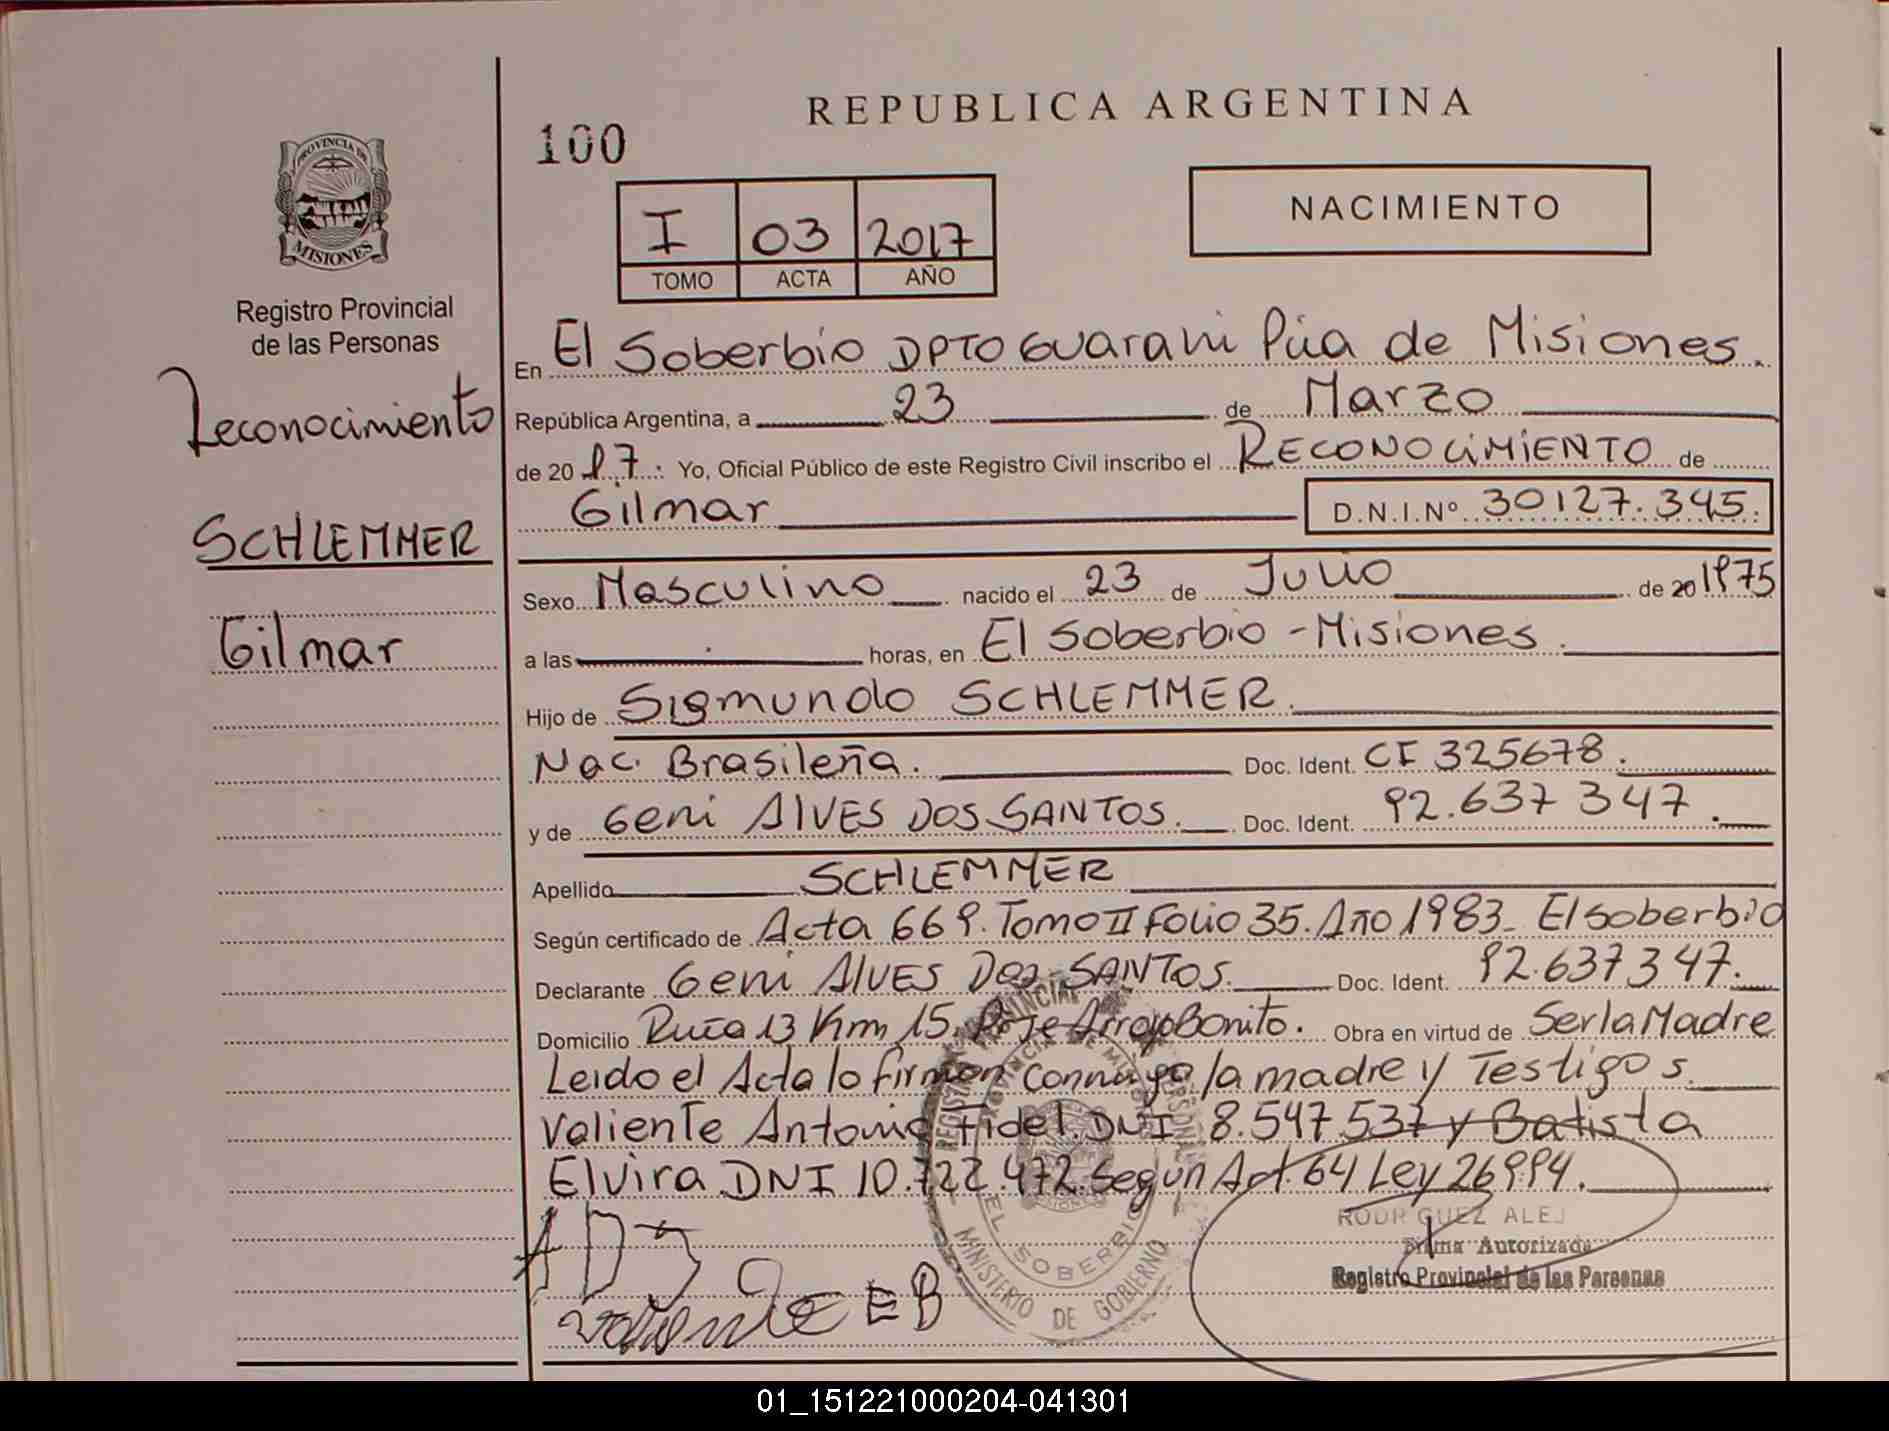 REPUBLICA ARGENTINA
100
NACIMIENTO
I 03 2017
TOMO ACTA AÑO
PROVINCIA DE
MISIONES
Registro Provincial
de las Personas
Reconocimiento
SCHLEMMER
Gilmar
En El Soberbio DPTO Guarani Pcia de Misiones.
República Argentina, a 23 de Marzo
de 20 17 : Yo, Oficial Público de este Registro Civil inscribo el RECONOCIMIENTO de
Gilmar D.N.I.Nº 30127.345.
Sexo Masculino nacido el 23 de Julio de 20 1975
a las horas, en El Soberbio - Misiones.
Hijo de Sigmundo SCHLEMMER.
Nac. Brasileña. Doc. Ident. CI 325678.
y de Geni Alves DOS SANTOS. Doc. Ident. 92.637 347.
Apellido SCHLEMMER
Según certificado de Acta 669. Tomo II Folio 35. Año 1983- El Soberbio
Declarante Geni Alves Dos SANTOS. Doc. Ident. 92.637347.
Domicilio Ruta 13 Km 15. Pje Arroyo Bonito. Obra en virtud de Ser la Madre
Leido el Acta lo firman conmigo la madre y Testigos
Valiente Antonio Fidel. DNI 8.547.537 y Batista
Elvira DNI 10.722.472. Segun Art. 64 Ley 26994.
ADS
Valiente EB
EL SOBERBIO
MINISTERIO DE GOBIERNO
RODRIGUEZ ALEJ
Firma Autorizada
Registro Provincial de las Personas
01_151221000204-041301